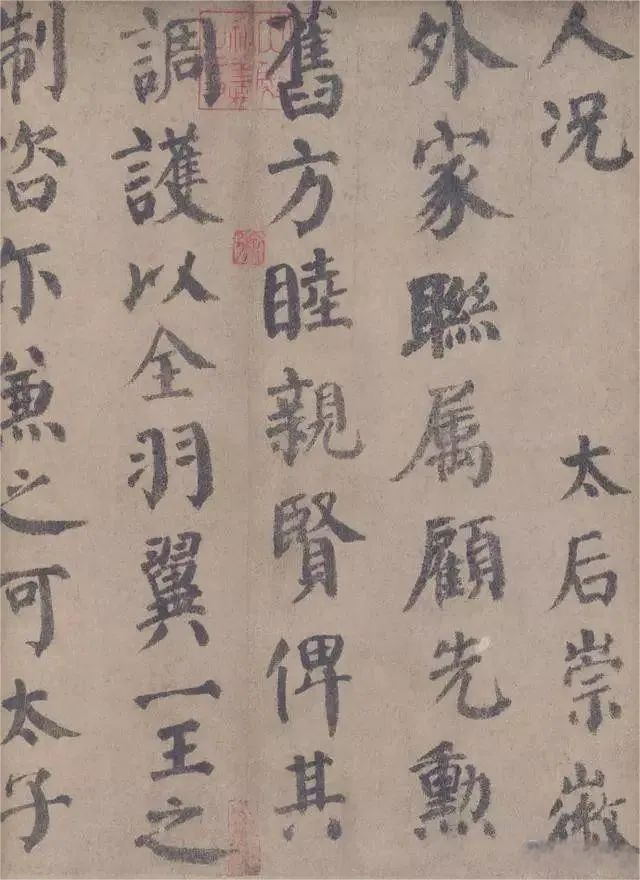 人况 太后崇徽
外家聯属顧先勲
舊方睦親賢俾其
調護以全羽翼一王之
制咨尓兼之可太子